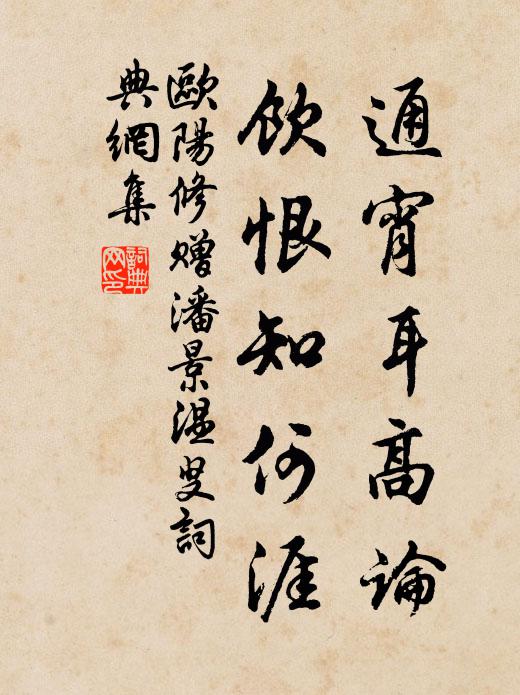 通宵耳高論
飲恨知何涯
歐陽修贈潘景温叟詞
典網集
詞典
网印